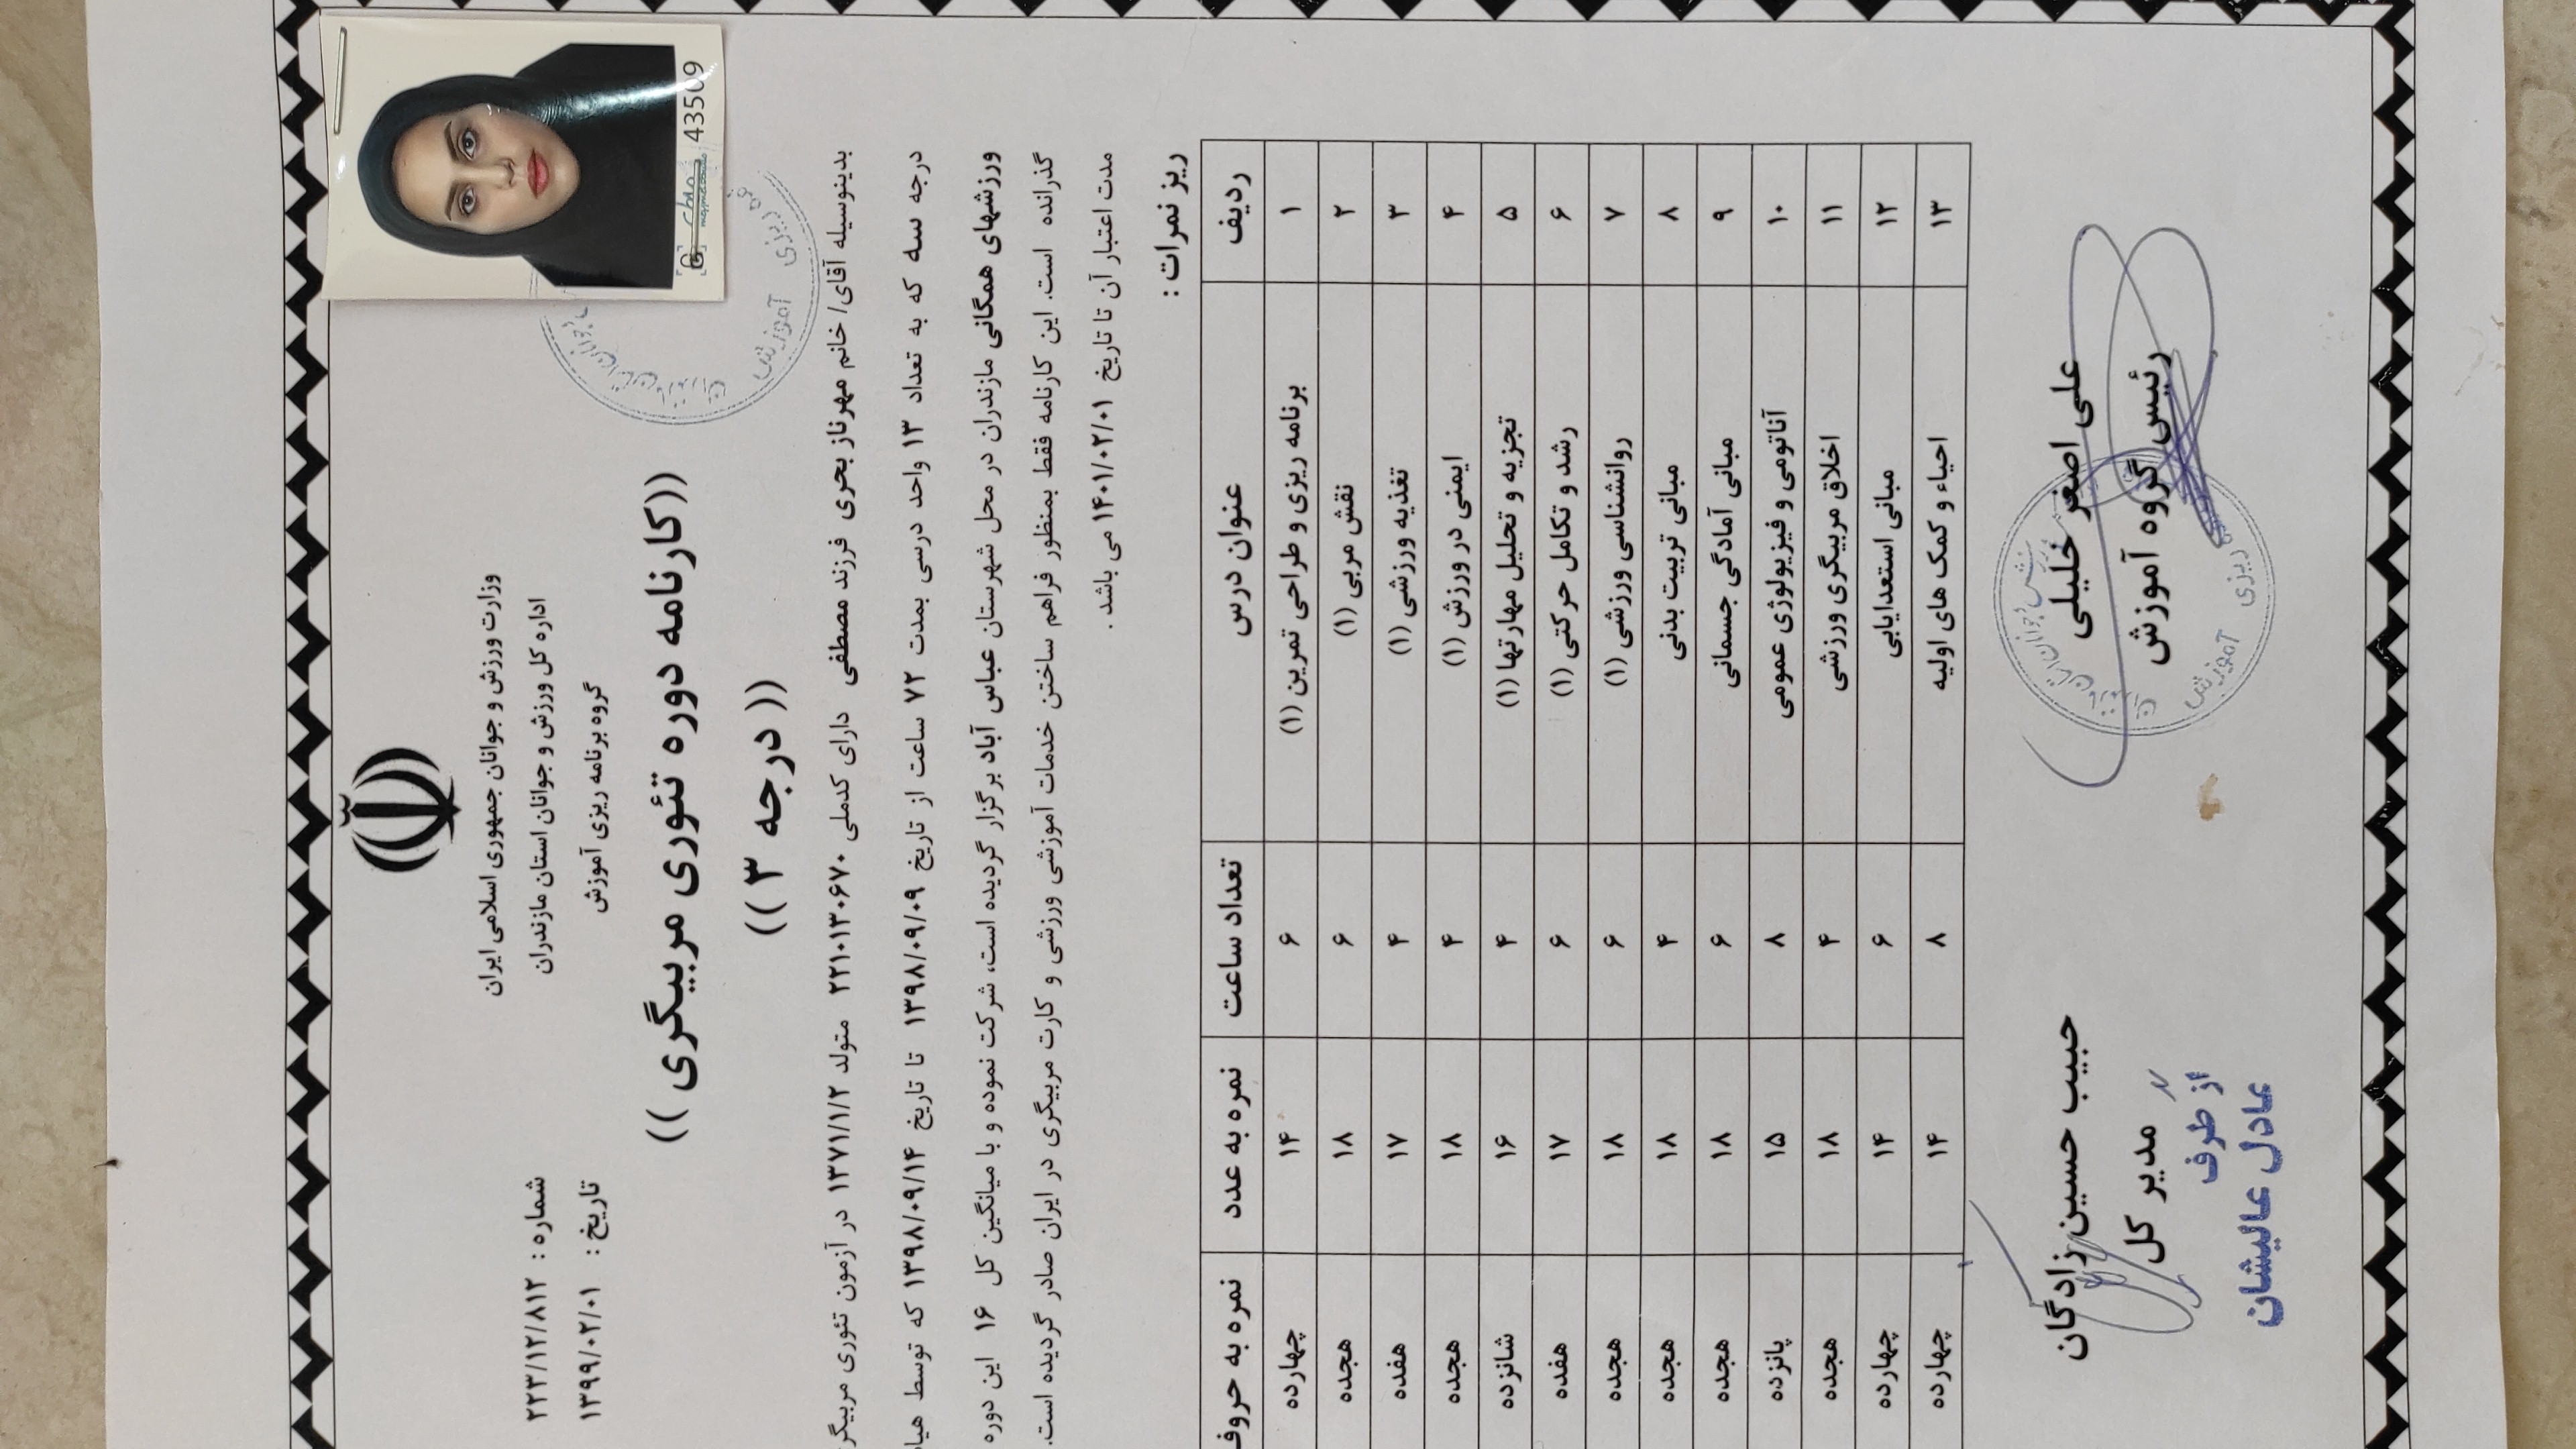 وزارت ورزش و جوانان جمهوری اسلامی ایران
اداره کل ورزش و جوانان استان مازندران
گروه برنامه ریزی آموزش
شماره : ۲۲۳/۱۲/۸۱۲
تاریخ : ۱۳۹۹/۰۲/۰۱
43509
((کارنامه دوره تئوری مربیگری ))
(( درجه ۳ ))
بدینوسیله آقای/ خانم مهرناز بحری فرزند مصطفی دارای کدملی ۲۲۱۰۱۳۰۶۷۰ متولد ۱۳۷۱/۱/۲ در آزمون تئوری مربیگر
درجه سه که به تعداد ۱۳ واحد درسی بمدت ۷۲ ساعت از تاریخ ۱۳۹۸/۰۹/۰۹ تا تاریخ ۱۳۹۸/۰۹/۱۴ که توسط هیا
ورزشهای همگانی مازندران در محل شهرستان عباس آباد برگزار گردیده است، شرکت نموده و با میانگین کل ۱۶ این دوره
گذرانده است. این کارنامه فقط بمنظور فراهم ساختن خدمات آموزشی ورزشی و کارت مربیگری در ایران صادر گردیده است.
مدت اعتبار آن تا تاریخ ۱۴۰۱/۰۲/۰۱ می باشد .
ریز نمرات :
ردیف عنوان درس تعداد ساعت نمره به عدد نمره به حروف
۱ برنامه ریزی و طراحی تمرین (۱) ۶ ۱۴ چهارده
۲ نقش مربی (۱) ۶ ۱۸ هجده
۳ تغذیه ورزشی (۱) ۴ ۱۷ هفده
۴ ایمنی در ورزش (۱) ۴ ۱۸ هجده
۵ تجزیه و تحلیل مهارتها (۱) ۴ ۱۶ شانزده
۶ رشد و تکامل حرکتی (۱) ۶ ۱۷ هفده
۷ روانشناسی ورزشی (۱) ۶ ۱۸ هجده
۸ مبانی تربیت بدنی ۴ ۱۸ هجده
۹ مبانی آمادگی جسمانی ۶ ۱۸ هجده
۱۰ آناتومی و فیزیولوژی عمومی ۸ ۱۵ پانزده
۱۱ اخلاق مربیگری ورزشی ۴ ۱۸ هجده
۱۲ مبانی استعدایابی ۶ ۱۴ چهارده
۱۳ احیاء و کمک های اولیه ۸ ۱۴ چهارده
علی اصغر خلیلی
رئیس گروه آموزش
حبیب حسین زادگان
مدیر کل
از طرف
عادل عالیشان